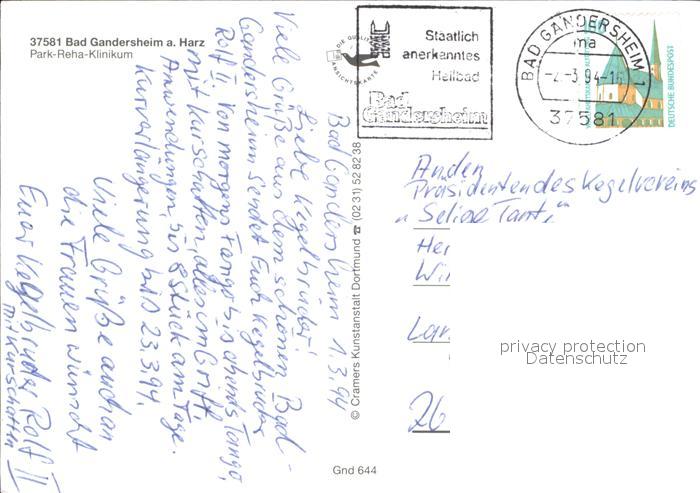 37581 Bad Gandersheim a. Harz
Park-Reha-Klinikum
DIE QUALITÄTS
ANSICHTSKARTE
Staatlich
anerkanntes
Heilbad
Bad
Gandersheim
BAD GANDERSHEIM 1
ma
-3.94-16
37581
DEUTSCHE BUNDESPOST
Bad Gandersheim 1.3.94
Liebe Kegelbrüder!
Viele Grüße aus dem schönen Bad-
Gandersheim sendet Euch Kegelbruder
Rolf II. Von morgens Tango bis abends Tango,
mit Kurschatten, alles im Griff.
Anwendungen, bis 8 Stück am Tage.
Kurverlängerung bis 23.3.94.
Viele Grüße auch an
die Frauen wünscht
Euer Kegelbruder Rolf II
mit Kurschatten
© Cramers Kunstanstalt Dortmund ☎ (02 31) 52 82 38
An den
Präsidenten des Kegelvereins
„Selige Tant"
Her
Wi
Lan
26
privacy protection
Datenschutz
Gnd 644